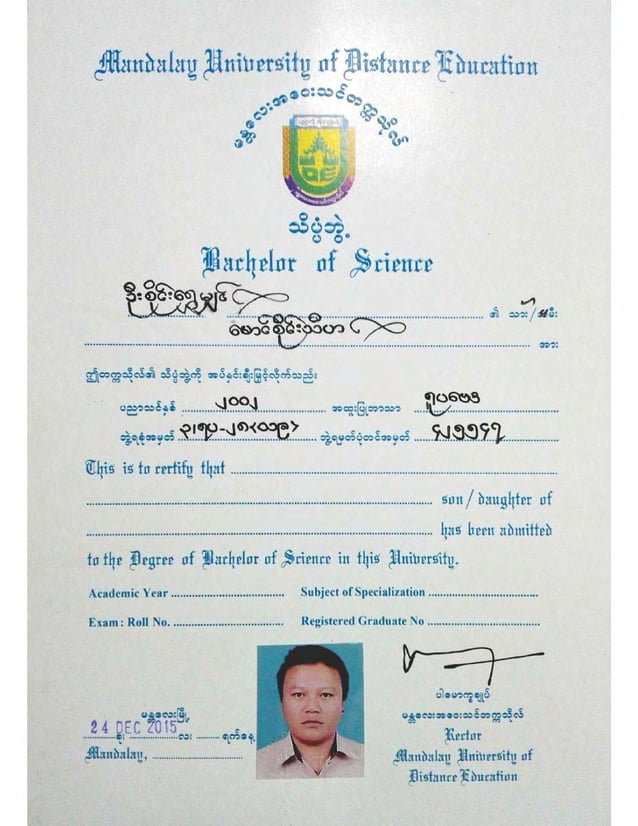 Mandalay University of Distance Education
မန္တလေးအဝေးသင်တက္ကသိုလ်
သိပ္ပံဘွဲ့
Bachelor of Science
ဦးစိုင်းရွှေမျှင် ၏ သား/သမီး
မောင်စိုင်းသီဟ အား
ဤတက္ကသိုလ်၏ သိပ္ပံဘွဲ့ကို အပ်နှင်းချီးမြှင့်လိုက်သည်။
ပညာသင်နှစ် ၂၀၀၂ အထူးပြုဘာသာ ရူပဗေဒ
ဘွဲ့ရစုံအမှတ် ဘွဲ့ရမှတ်ပုံတင်အမှတ်
This is to certify that
son/daughter of
has been admitted
to the Degree of Bachelor of Science in this University.
Academic Year Subject of Specialization
Exam: Roll No. Registered Graduate No
ပါမောက္ခချုပ်
မန္တလေးမြို့ မန္တလေးအဝေးသင်တက္ကသိုလ်
24 DEC 2015 ခု၊ လ၊ ရက်နေ့ Rector
Mandalay, Mandalay University of
Distance Education